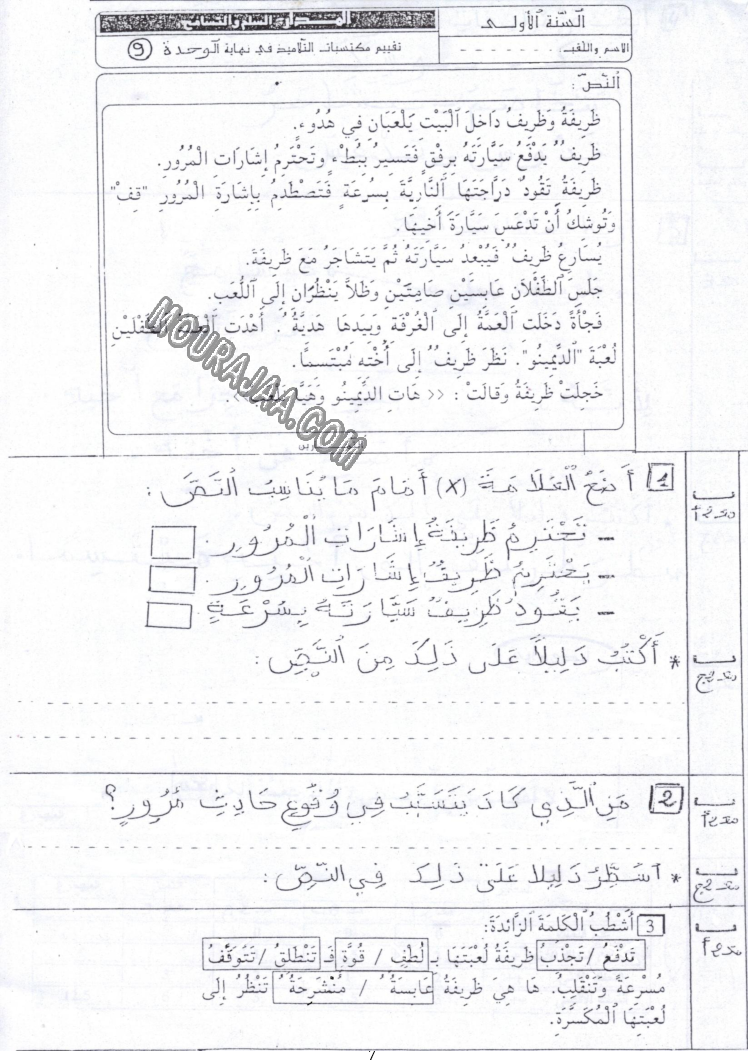 السّنة الأولى
الاسم واللقب - - - - - - -
تقييم مكتسبات التلاميذ في نهاية الوحدة 9
النّصّ:
ظَرِيفَةُ وَظَرِيفُ دَاخِلَ الْبَيْتِ يَلْعَبَانِ فِي هُدُوءٍ.
ظَرِيفُ يَدْفَعُ سَيَّارَتَهُ بِرِفْقٍ فَتَسِيرُ بِبُطْءٍ وَتَحْتَرِمُ إِشَارَاتِ الْمُرُورِ.
ظَرِيفَةُ تَقُودُ دَرَّاجَتَهَا النَّارِيَّةَ بِسُرْعَةٍ فَتَصْطَدِمُ بِإِشَارَةِ الْمُرُورِ "قِفْ"
وَتُوشِكُ أَنْ تَدْعَسَ سَيَّارَةَ أَخِيهَا.
يُسَارِعُ ظَرِيفُ فَيُبْعِدُ سَيَّارَتَهُ ثُمَّ يَتَشَاجَرُ مَعَ ظَرِيفَةَ.
جَلَسَ الطِّفْلَانِ عَابِسَيْنِ صَامِتَيْنِ وَظَلَّا يَنْظُرَانِ إِلَى اللُّعَبِ.
فَجْأَةً دَخَلَتِ الْعَمَّةُ إِلَى الْغُرْفَةِ وَبِيَدِهَا هَدِيَّةُ. أَهْدَتْ الطِّفْلَيْنِ
لُعْبَةَ "الدِّيمِينُو". نَظَرَ ظَرِيفُ إِلَى أُخْتِهِ مُبْتَسِمًا.
خَجِلَتْ ظَرِيفَةُ وَقَالَتْ : << هَاتِ الدِّيمِينُو وَهَيَّا نَلْعَبْ >>
MOURAJAA.COM
1 أَضَعُ الْعَلَامَةَ (x) أَمَامَ مَا يُنَاسِبُ النَّصَّ :
– تَحْتَرِمُ ظَرِيفَةُ إِشَارَاتِ الْمُرُورِ.
– يَحْتَرِمُ ظَرِيفُ إِشَارَاتِ الْمُرُورِ.
– يَقُودُ ظَرِيفُ سَيَّارَتَهُ بِسُرْعَةٍ.
* أَكْتُبُ دَلِيلًا عَلَى ذَلِكَ مِنَ النَّصِّ :
2 مَنِ الَّذِي كَادَ يَتَسَبَّبُ فِي وُقُوعِ حَادِثِ مُرُورٍ؟
* أُسَطِّرُ دَلِيلًا عَلَى ذَلِكَ فِي النَّصِّ :
3 أَشْطُبُ الْكَلِمَةَ الزَّائِدَةَ:
تَدْفَعُ / تَجْذِبُ ظَرِيفَةُ لُعْبَتَهَا بِـ لُطْفٍ / قُوَّةٍ فَـ تَنْطَلِقُ / تَتَوَقَّفُ
مُسْرِعَةً وَتَنْقَلِبُ. هَا هِيَ ظَرِيفَةُ عَابِسَةُ / مُنْشَرِحَةُ تَنْظُرُ إِلَى
لُعْبَتِهَا الْمُكَسَّرَةِ.